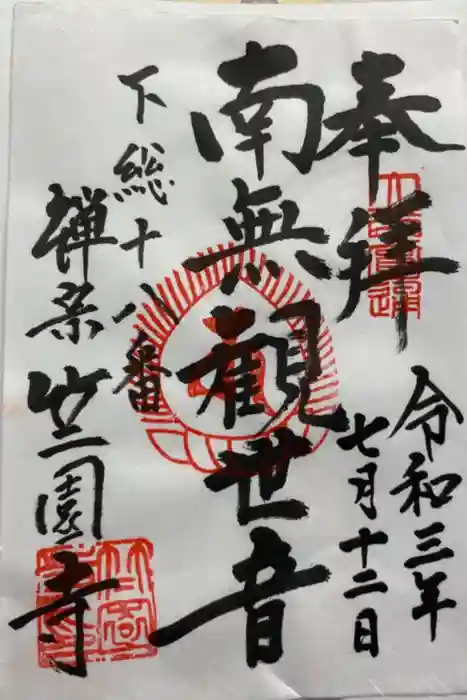 奉拝
令和三年
七月十二日
南無觀世音
下総十八番
禅宗 竺園寺